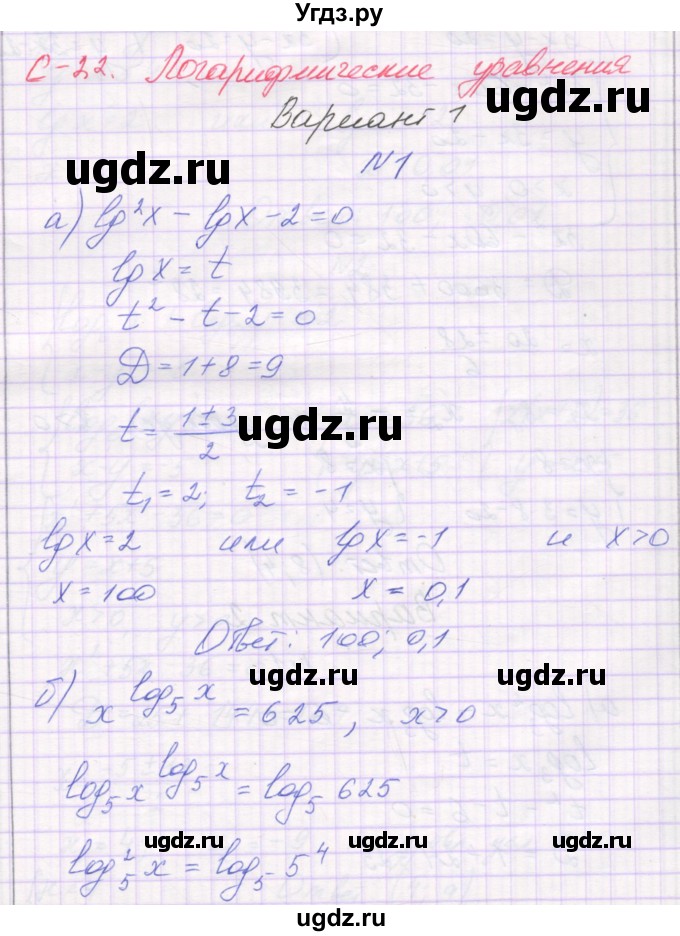 Угдз.ру
С-22. Логарифмические уравнения
ugdz.ru
Вариант 1
ugdz.ru
N1
а) lg²x - lgx - 2 = 0
lgx = t
t² - t - 2 = 0
Д = 1 + 8 = 9
t = (1 ± 3)/2
ugdz.ru
t₁ = 2; t₂ = -1
lgx = 2 или lgx = -1 и x > 0
x = 100 x = 0,1
Ответ: 100; 0,1
ugdz.ru ugdz.ru
б) x^(log₅x) = 625, x > 0
log₅x^(log₅x) = log₅625
ugdz.ru ugdz.ru
log₅²x = log₅5⁴
ugdz.ru